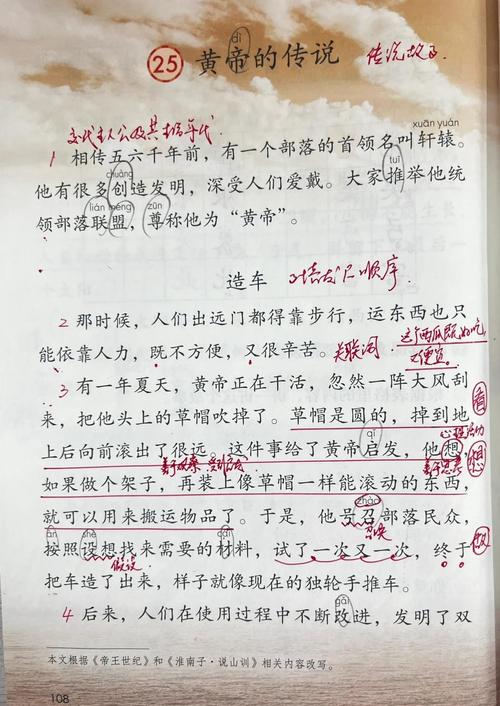 dì
25 黄帝的传说 传说故事
交代主人公及其生活年代
xuān yuán
1 相传五六千年前，有一个部落的首领名叫轩辕。
chuàng tuī
他有很多创造发明，深受人们爱戴。大家推举他统
lián méng zūn
领部落联盟，尊称他为“黄帝”。
造车 顺序
2 那时候，人们出远门都得靠步行，运东西也只
能依靠人力，既不方便，又很辛苦。关联词
这个西瓜既好吃
又便宜
3 有一年夏天，黄帝正在干活，忽然一阵大风刮
来，把他头上的草帽吹掉了。草帽是圆的，掉到地 看
心理活动
qǐ
上后向前滚出了很远。这件事给了黄帝启发，他想， 想
善于观察 善于思考
如果做个架子，再装上像草帽一样能滚动的东西，
zhào
就可以用来搬运物品了。于是，他号召部落民众，
àn shè 召唤
按照设想找来需要的材料，试了一次又一次，终于 做
假设
把车造了出来，样子就像现在的独轮手推车。
gǎi
4 后来，人们在使用过程中不断改进，发明了双
本文根据《帝王世纪》和《淮南子·说山训》相关内容改写。
108